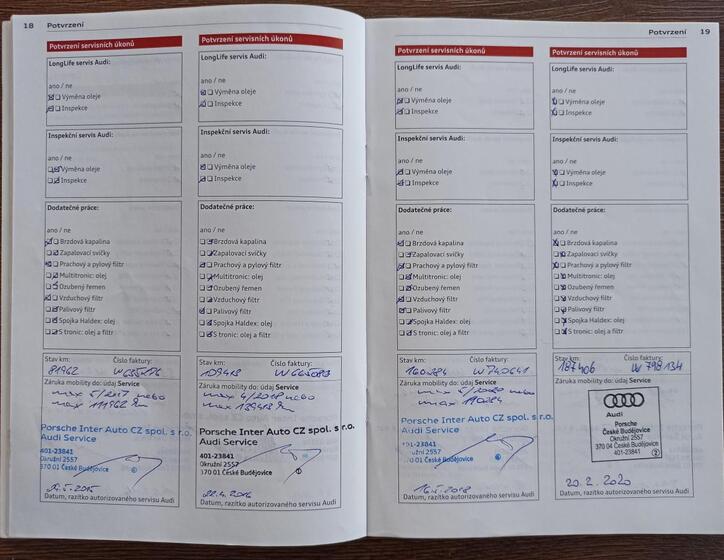 18 Potvrzení
Potvrzení servisních úkonů
LongLife servis Audi:
ano / ne
Výměna oleje
Inspekce
Inspekční servis Audi:
ano / ne
Výměna oleje
Inspekce
Dodatečné práce:
ano / ne
Brzdová kapalina
Zapalovací svíčky
Prachový a pylový filtr
Multitronic: olej
Ozubený řemen
Vzduchový filtr
Palivový filtr
Spojka Haldex: olej
S tronic: olej a filtr
Stav km: Číslo faktury:
81962
Záruka mobility do: údaj Service
max 5/2017 nebo
max 111962 km
Porsche Inter Auto CZ spol. s r.o.
Audi Service
401-23841
Okružní 2557
370 01 České Budějovice
Datum, razítko autorizovaného servisu Audi
Potvrzení servisních úkonů
LongLife servis Audi:
ano / ne
Výměna oleje
Inspekce
Inspekční servis Audi:
ano / ne
Výměna oleje
Inspekce
Dodatečné práce:
ano / ne
Brzdová kapalina
Zapalovací svíčky
Prachový a pylový filtr
Multitronic: olej
Ozubený řemen
Vzduchový filtr
Palivový filtr
Spojka Haldex: olej
S tronic: olej a filtr
Stav km: Číslo faktury:
109418
Záruka mobility do: údaj Service
max 4/2018 nebo
max 139418 km
Porsche Inter Auto CZ spol. s r.o.
Audi Service
401-23841
Okružní 2557
370 01 České Budějovice
22.4.2016
Datum, razítko autorizovaného servisu Audi
Potvrzení 19
Potvrzení servisních úkonů
LongLife servis Audi:
ano / ne
Výměna oleje
Inspekce
Inspekční servis Audi:
ano / ne
Výměna oleje
Inspekce
Dodatečné práce:
ano / ne
Brzdová kapalina
Zapalovací svíčky
Prachový a pylový filtr
Multitronic: olej
Ozubený řemen
Vzduchový filtr
Palivový filtr
Spojka Haldex: olej
S tronic: olej a filtr
Stav km: Číslo faktury:
160284 W740641
Záruka mobility do: údaj Service
max 5/2020 nebo
max 190284
Porsche Inter Auto CZ spol. s r.o.
Audi Service
401-23841
Okružní 2557
370 01 České Budějovice
Datum, razítko autorizovaného servisu Audi
Potvrzení servisních úkonů
LongLife servis Audi:
ano / ne
Výměna oleje
Inspekce
Inspekční servis Audi:
ano / ne
Výměna oleje
Inspekce
Dodatečné práce:
ano / ne
Brzdová kapalina
Zapalovací svíčky
Prachový a pylový filtr
Multitronic: olej
Ozubený řemen
Vzduchový filtr
Palivový filtr
Spojka Haldex: olej
S tronic: olej a filtr
Stav km: Číslo faktury:
187406 W 798134
Záruka mobility do: údaj Service
Audi
Porsche
České Budějovice
Okružní 2557
370 04 České Budějovice
401-23841
2
20.2.2020
Datum, razítko autorizovaného servisu Audi